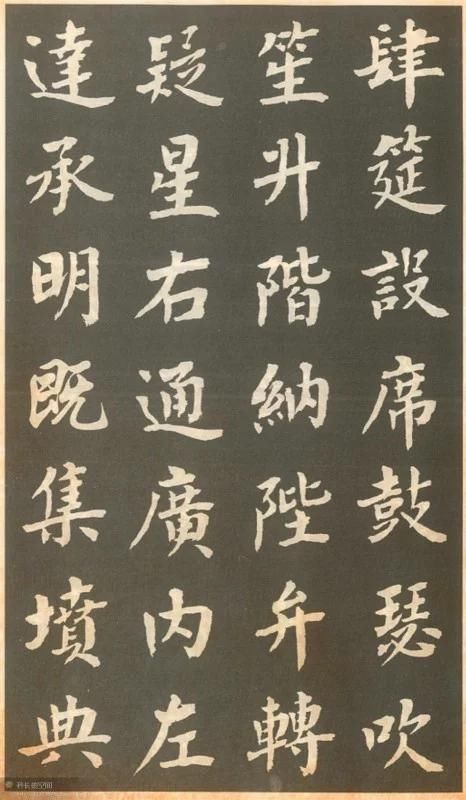 肆筵設席鼓瑟吹
笙升階納陛弁轉
疑星右通廣内左
達承明既集墳典